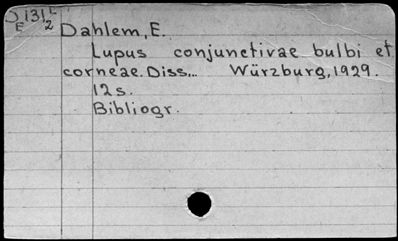 J 131 L
E 2
Dahlem, E.
Lupus conjunctivae bulbi et
corneae. Diss... Würzburg, 1929.
12 s.
Bibliogr.